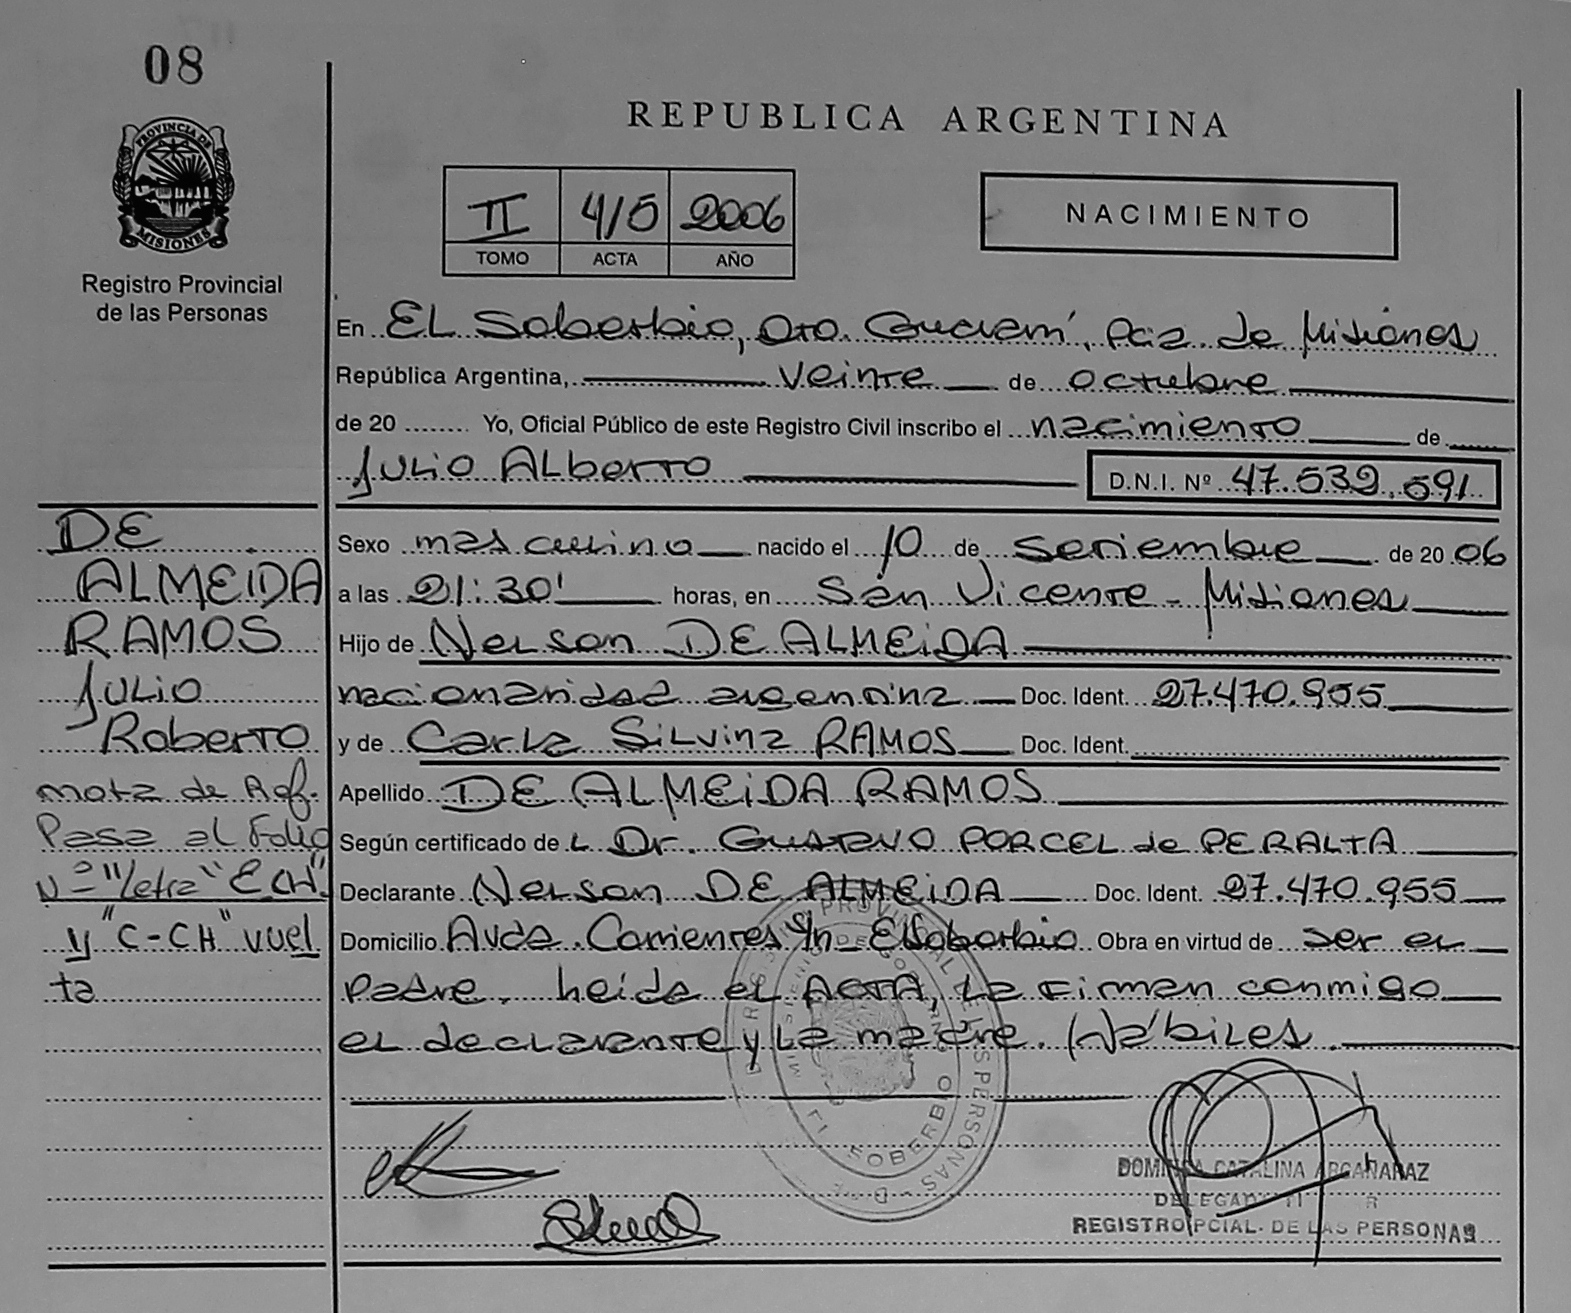 08
PROVINCIA DE
MISIONES
Registro Provincial
de las Personas
REPUBLICA ARGENTINA
II 415 2006
TOMO ACTA AÑO
NACIMIENTO
En EL Soberbio, Dto. Guaraní, Pcia de Misiones
República Argentina, veinte de octubre
de 20 Yo, Oficial Público de este Registro Civil inscribo el nacimiento de
Julio Alberto D.N.I. Nº 47.532.591
Sexo masculino nacido el 10 de setiembre de 2006
a las 21:30' horas, en San Vicente - Misiones
Hijo de Nelson DE ALMEIDA
nacionalidad argentina Doc. Ident. 27.470.955
y de Carla Silvina RAMOS Doc. Ident.
Apellido DE ALMEIDA RAMOS
Según certificado de L Dr. Gustavo PORCEL de PERALTA
Declarante Nelson DE ALMEIDA Doc. Ident. 27.470.955
Domicilio Avda. Corrientes S/n - El Soberbio Obra en virtud de ser el
Padre. Leida el ACTA, La firman conmigo
el declarante y La madre. Hábiles.
DE
ALMEIDA
RAMOS
Julio
Roberto
nota de Ref.
Pasa al Folio
Nº 11 letra "E CH"
y "C-CH" vuel
ta
DOMINGA CATALINA ARGAÑARAZ
REGISTRO PCIAL. DE LAS PERSONAS